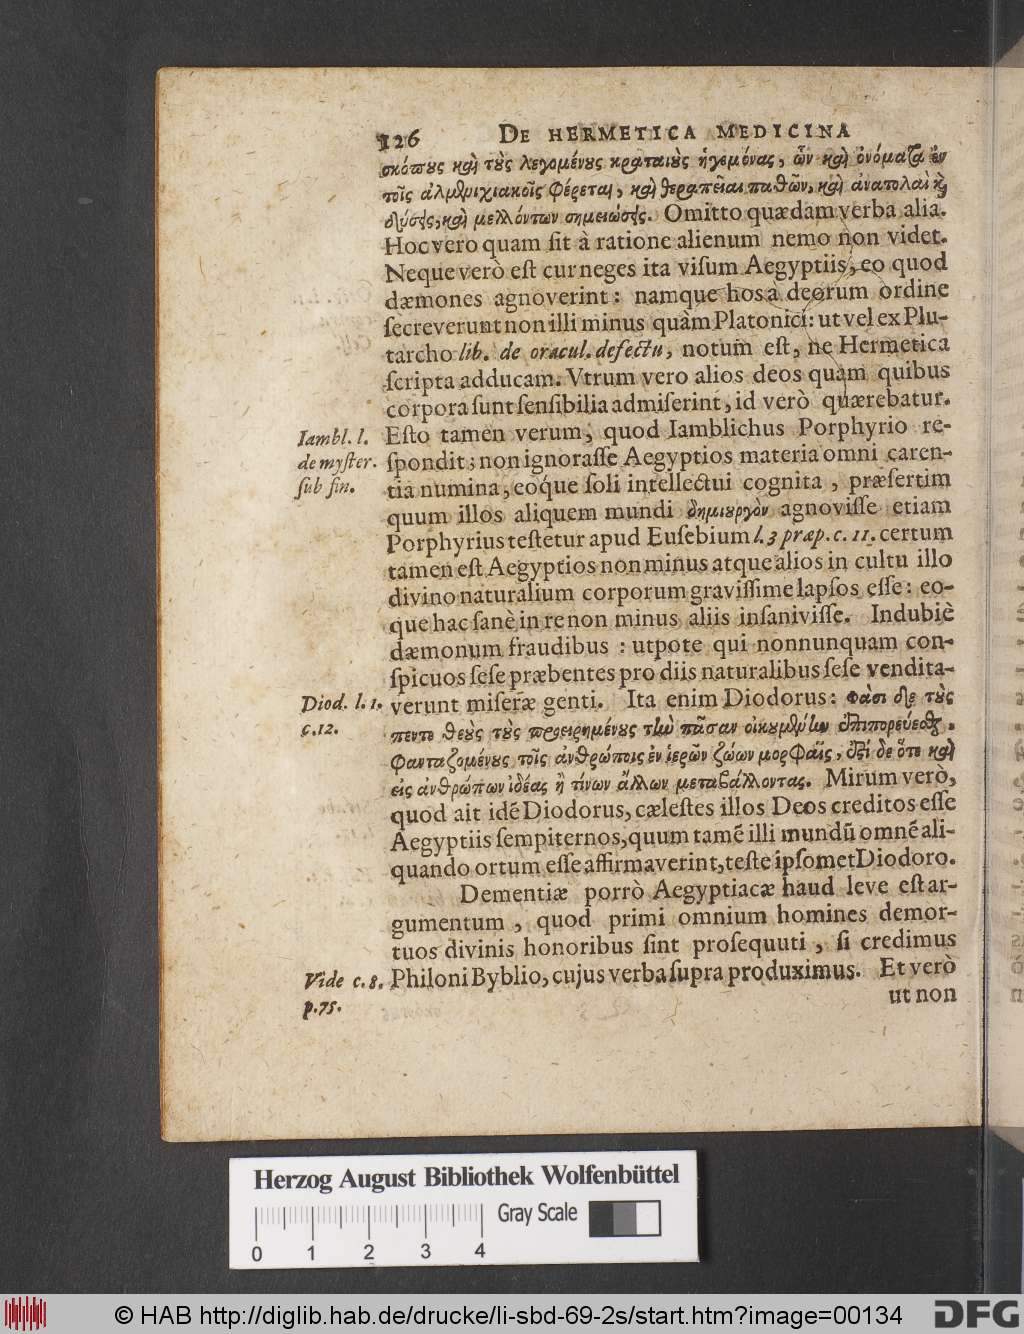 126 DE HERMETICA MEDICINA
σκόπους καὶ τοὺς λεγομένους κραταιοὺς ἡγεμόνας, ὧν καὶ ὀνόματα ἐν
τοῖς ἀλμενιχιακοῖς φέρεται, καὶ θεραπεῖαι παθῶν, καὶ ἀνατολαὶ κ̀
δύσεις, καὶ μελλόντων σημειώσεις. Omitto quædam verba alia.
Hoc vero quam sit à ratione alienum nemo non videt.
Neque verò est cur neges ita visum Aegyptiis, eo quod
dæmones agnoverint: namque hos à deorum ordine
secreverunt non illi minus quàm Platonici: ut vel ex Plu-
tarcho lib. de oracul. defectu, notum est, ne Hermetica
scripta adducam. Vtrum vero alios deos quàm quibus
corpora sunt sensibilia admiserint, id verò quærebatur.
Iambl. l. Esto tamen verum, quod Iamblichus Porphyrio re-
de myster. spondit; non ignorasse Aegyptios materia omni caren-
sub fin. tia numina, eoq́ue soli intellectui cognita, præsertim
quum illos aliquem mundi δημιουργὸν agnovisse etiam
Porphyrius testetur apud Eusebium l. 3 præp. c. 11. certum
tamen est Aegyptios non minus atque alios in cultu illo
divino naturalium corporum gravissime lapsos esse: eo-
que hac sanè in re non minus aliis insanivisse. Indubiè
dæmonum fraudibus: utpote qui nonnunquam con-
spicuos sese præbentes pro diis naturalibus sese vendita-
Diod. l. 1. verunt miseræ genti. Ita enim Diodorus: Φασὶ δὲ τοὺς
c. 12. πεντε θεοὺς τοὺς προειρημένους τὴν πᾶσαν οἰκουμένην ἐπιπορεύεσθαι.
φανταζομένους τοῖς ἀνθρώποις ἐν ἱερῶν ζώων μορφαῖς, ἔστι δὲ ὅτε καὶ
εἰς ἀνθρώπων ἰδέας ἢ τίνων ἄλλων μεταβάλλοντας. Mirum verò,
quod ait idē Diodorus, cælestes illos Deos creditos esse
Aegyptiis sempiternos, quum tamē illi mundū omnē ali-
quando ortum esse affirmaverint, teste ipsomet Diodoro.
Dementiæ porrò Aegyptiacæ haud leve est ar-
gumentum, quod primi omnium homines demor-
tuos divinis honoribus sint prosequuti, si credimus
Vide c. 8. Philoni Byblio, cujus verba supra produximus. Et verò
p. 75. ut non
Herzog August Bibliothek Wolfenbüttel
Gray Scale
0 1 2 3 4
© HAB http://diglib.hab.de/drucke/li-sbd-69-2s/start.htm?image=00134
DFG